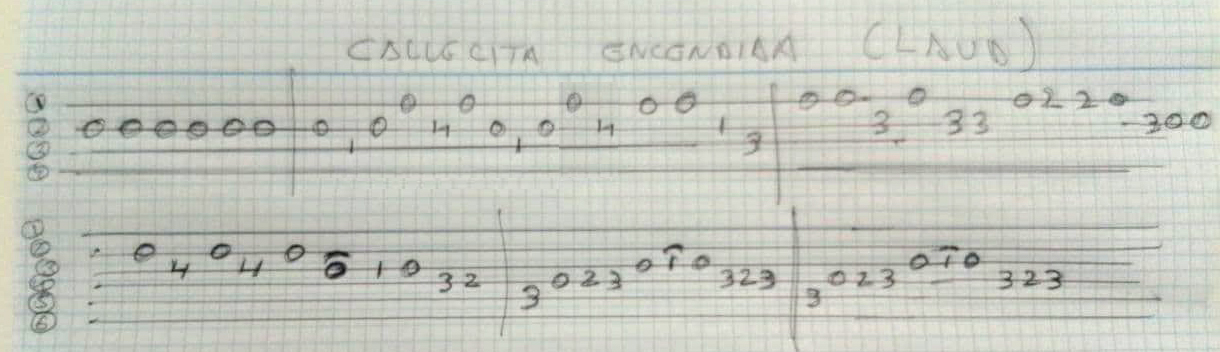 CALLECITA ENCENDIDA (LAUD)
① 0 0
② 0 0 0 0 0 0 0 1 0 0 4 0 0 1 0 0 4 0 0 1 3 0 0 3 0 3 3 0 2 2 0 3 0 0
③
④
① 0 4 0 4 0 0 1 0 3 2 3 0 2 3 0 1 0 3 2 3 3 0 2 3 0 1 0 3 2 3